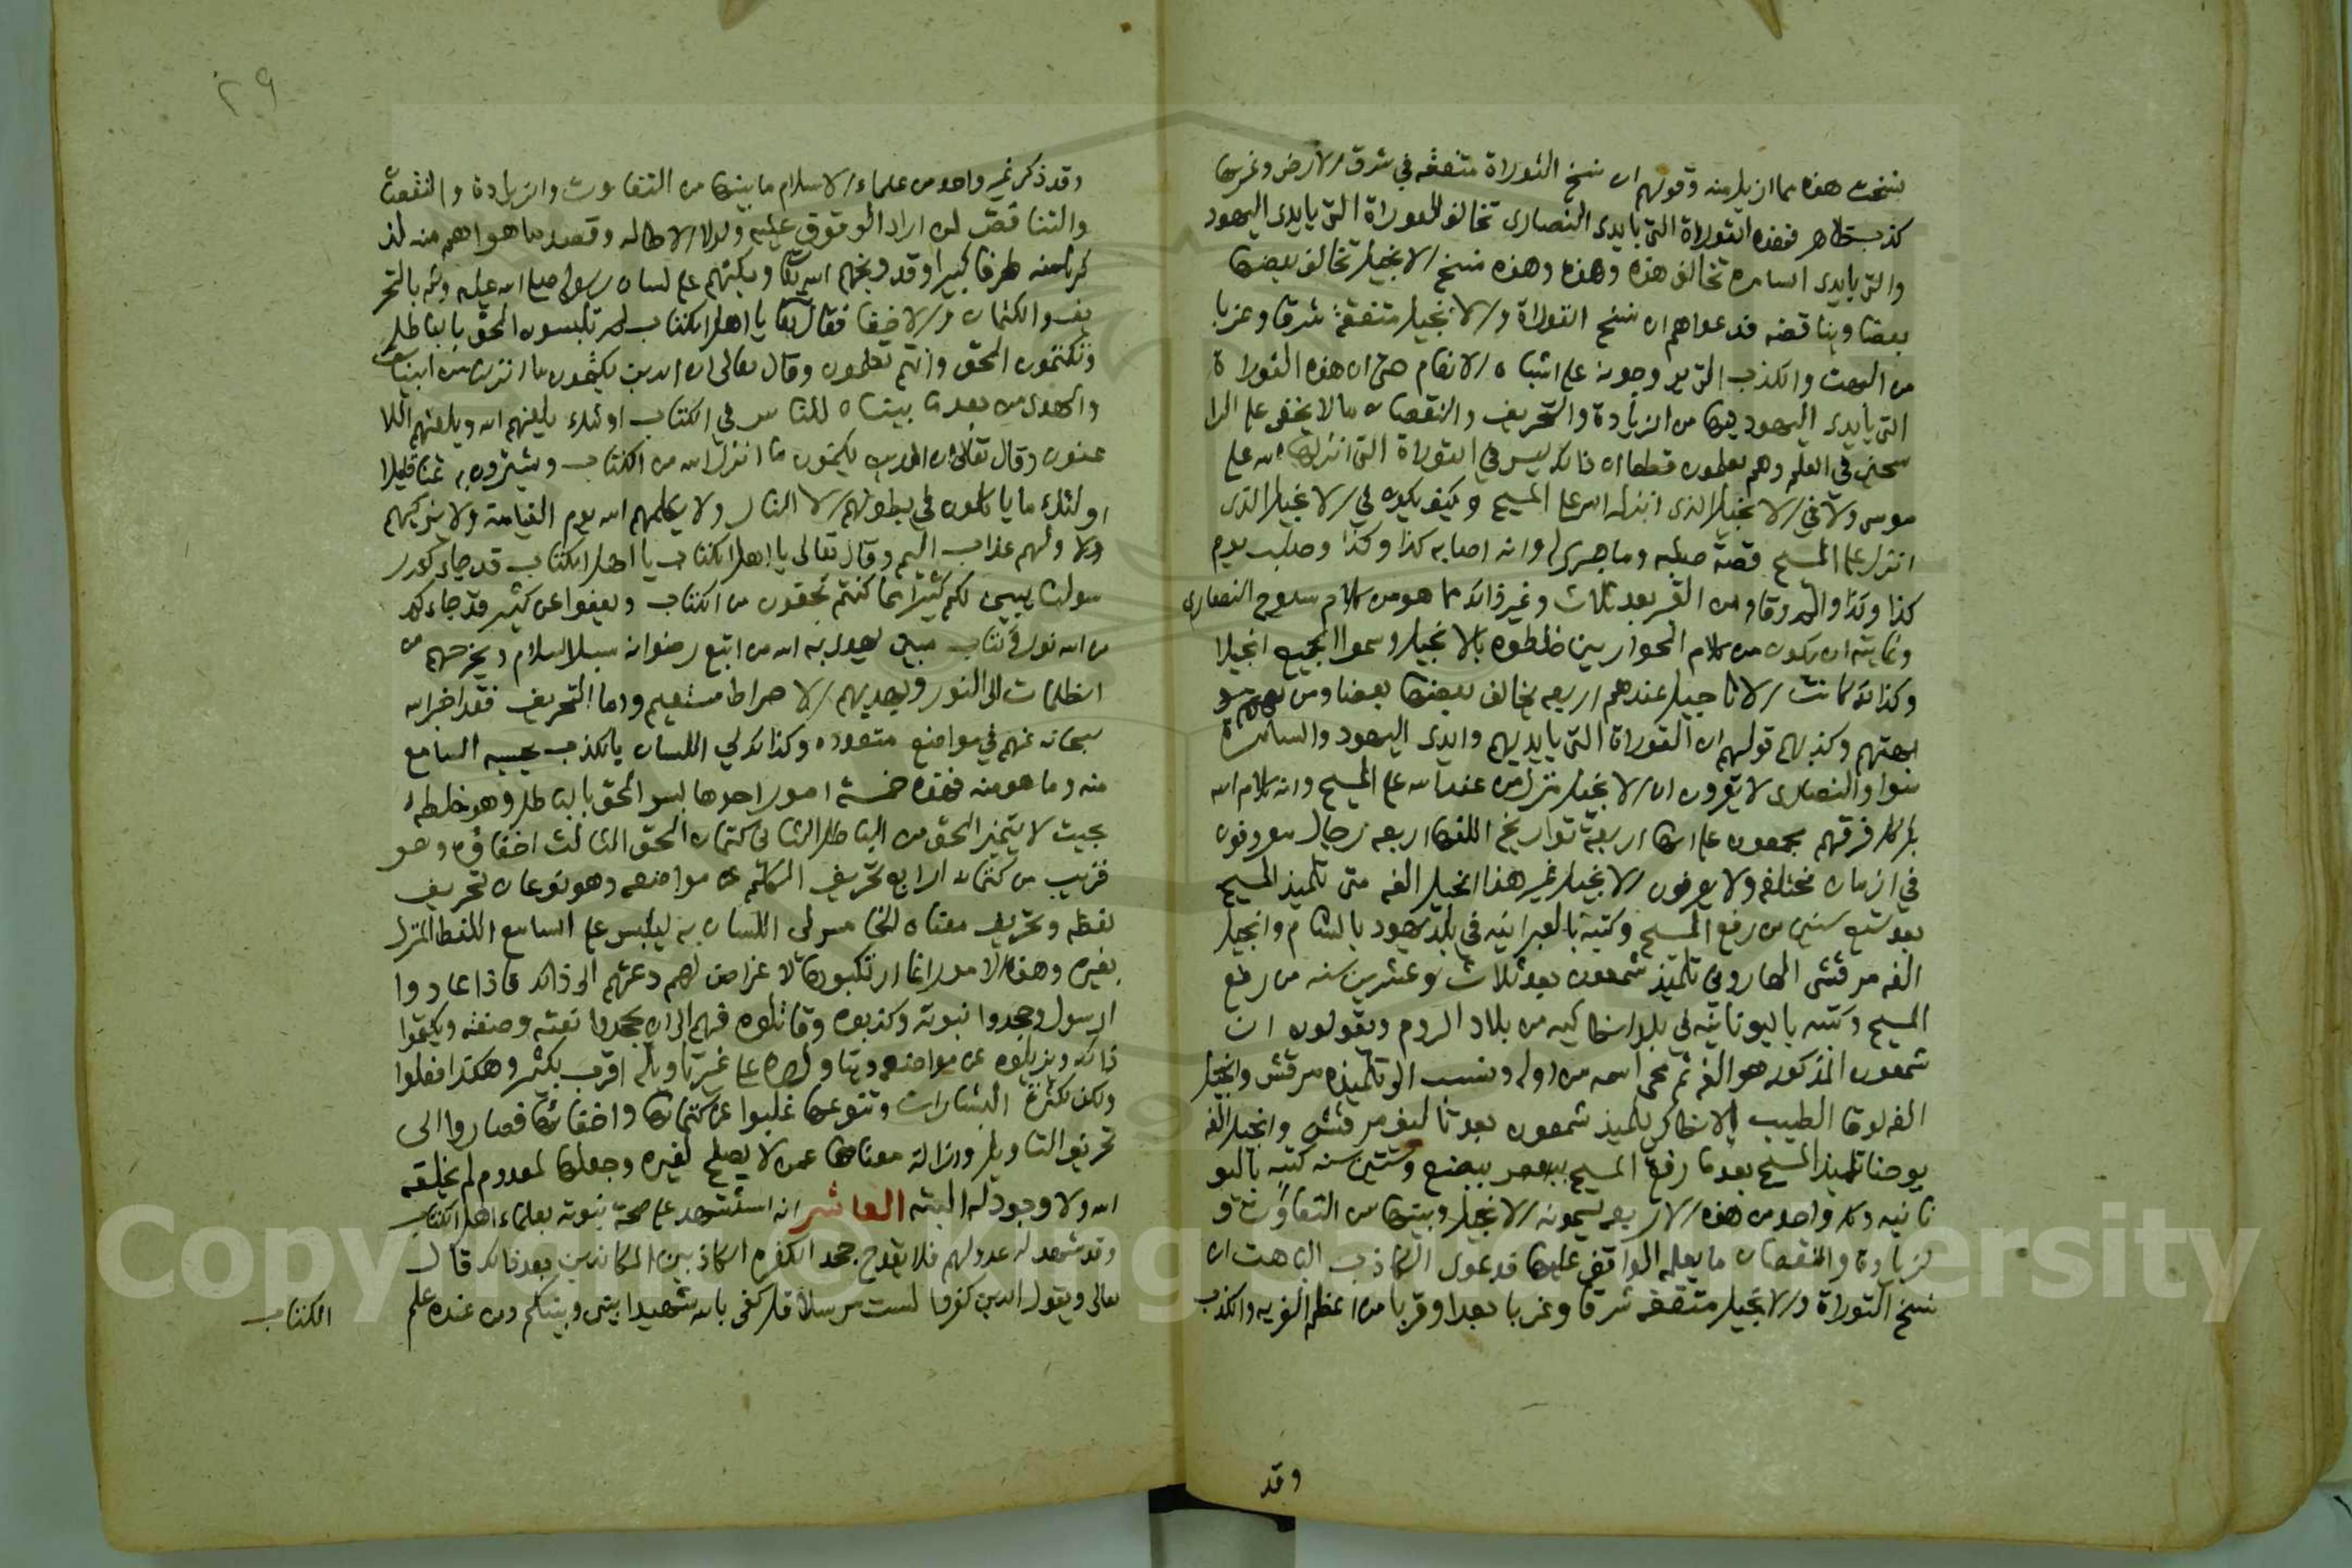 نسخت هذه مما ازيل منه وقولهم ان نسخ التوراة متفقه في شرق الارض وغربها
كذب ظاهر فهذه التوراة التي بايدي النصارى تخالف للتوراة التي بايدي اليهود
والتي بايدي السامرة تخالف هذه وهذه وهذه نسخ الانجيل تخالف بعضها
بعضا ويناقضه فدعواهم ان نسخ التوراة والانجيل متفقة شرقا وغربا
من البهت والكذب التي يروجونه على اشباه الانعام حتى ان هذه التوراة
التي بايدي اليهود فيها من الزيادة والتحريف والنقصان ما لا يخفى على الرا
سخين في العلم وهم يعلمون قطعا ان ذلك ليس في التوراة التي انزلها الله على
موسى ولا في الانجيل الذي انزله الله على المسيح وكيف يكون في الانجيل الذي
انزل على المسيح قصة صلبه وما جرى له وانه اصابه كذا وكذا وصلب يوم
كذا وكذا وانه قام من القبر بعد ثلاث وغير ذلك مما هو من كلام شيوخ النصارى
وغايته ان يكون من كلام الحواريين خلطوه بالانجيل وسموا الجميع انجيلا
وكذلك كانت الاناجيل عندهم اربعه يخالف بعضها بعضا ومن
بهتهم وكذبهم قولهم ان التوراة التي بايديهم وايدي اليهود والسامرة
سوا والنصارى لا يقرون ان الانجيل منزل من عند الله على المسيح وانه كلام الله
بل كل فرقهم يجمعون على انها اربعة تواريخ الفها اربعه رجال معروفون
في ازمان مختلفه ولا يعرفون الانجيل غير هذا انجيل الفه متى تلميذ المسيح
بعد تسع سنين من رفع المسيح وكتبه بالعبرانيه في بلد يهود بالشام وانجيل
الفه مرقش الهاروني تلميذ شمعون بعد ثلاث وعشرين سنه من رفع
المسيح وكتبه باليونانيه في بلد انطاكيه من بلاد الروم ويقولون ان
شمعون المذكور هو الفه ثم محى اسمه من اوله ونسب الى تلميذه مرقش وانجيل
الفه لوقا الطبيب الانطاكي تلميذ شمعون بعد تاليف مرقش وانجيل الفه
يوحنا تلميذ المسيح بعد ما رفع المسيح ببضع وستين سنه كتبه باليو
نانيه وكل واحد من هذه الاربعه يسمونه الانجيل وبينها من التفاوت و
لزيادة والنقصان ما يعلمه الواقف عليها فدعوى الكاذب الباهت ان
نسخ التوراة والانجيل متفقه شرقا وغربا بعدا وقربا من اعظم الفريه والكذب
وقد
٢٩
وقد ذكر غير واحد من علماء الاسلام ما بينها من التفاوت والزيادة والنقصان
والتناقض لمن اراد الوقوف عليه ولولا الاطاله وقصد ما هو اهم منه لذ
كرنا منه طرفا كبيرا وقد وبخهم الله تعالى وبكتهم على لسان رسوله صلى الله عليه وسلم بالتحر
يف والكتمان والاخفا فقال تعالى يا اهل الكتاب لم تلبسون الحق بالباطل
وتكتمون الحق وانتم تعلمون وقال تعالى ان الذين يكتمون ما انزلنا من البينات
والهدى من بعد ما بيناه للناس في الكتاب اولئك يلعنهم الله ويلعنهم اللا
عنون وقال تعالى ان الذين يكتمون ما انزل الله من الكتاب ويشترون به ثمنا قليلا
اولئك ما ياكلون في بطونهم الا النار ولا يكلمهم الله يوم القيامة ولا يزكيهم
ولا ولهم عذاب اليم وقال تعالى يا اهل الكتاب يا اهل الكتاب قد جاءكم ر
سولنا يبين لكم كثيرا مما كنتم تخفون من الكتاب ويعفوا عن كثير قد جاءكم
من الله نور وكتاب مبين يهدي به الله من اتبع رضوانه سبل السلام ويخرجهم من
الظلمات الى النور ويهديهم الا صراط مستقيم واما التحريف فقد اخبر الله
سبحانه عنهم في مواضع متعدده وكذلك لي اللسان بالكتاب يحسبه السامع
منه وما هو منه فهذه خمسة امور احدها لبس الحق بالباطل وهو خلطه
بحيث لا يتميز الحق من الباطل الثاني كتمان الحق الثالث اخفاؤه وهو
قريب من كتمانه الرابع تحريف الكلم عن مواضعه وهو نوعان تحريف
لفظه وتحريف معناه الخامس لي اللسان به ليلبس على السامع اللفظ المنزل
بغيره وهذه الامور انما ارتكبوها لاغراض لهم دعتهم الى ذلك فاذا عادوا
الرسول وجحدوا نبوته وكذبوه وقاتلوه فهم الى ان يجحدوا نعته وصفته ويكتموا
ذلك ويزيلوه عن مواضعه ويتاولوه على غير تاويله اقرب بكثير وهكذا فعلوا
ولكن لكثرة البشارات وتنوعها غلبوا عن كتمانها واخفائها فصاروا الى
تحريف التاويل وازالة معناها عمن لا يصلح لغيره وجعلها لمعدوم لم يخلقه
الله ولا وجود له البته العاشر انه استشهد على صحة نبوته بعلماء اهل الكتاب
وقد شهد له عدولهم فلا يقدح جحد الكفره الكاذبين المعاندين بعد ذلك قال
تعالى ويقول الذين كفروا لست مرسلا قل كفى بالله شهيدا بيني وبينكم ومن عنده علم
الكتاب
Copyright © King Saud University